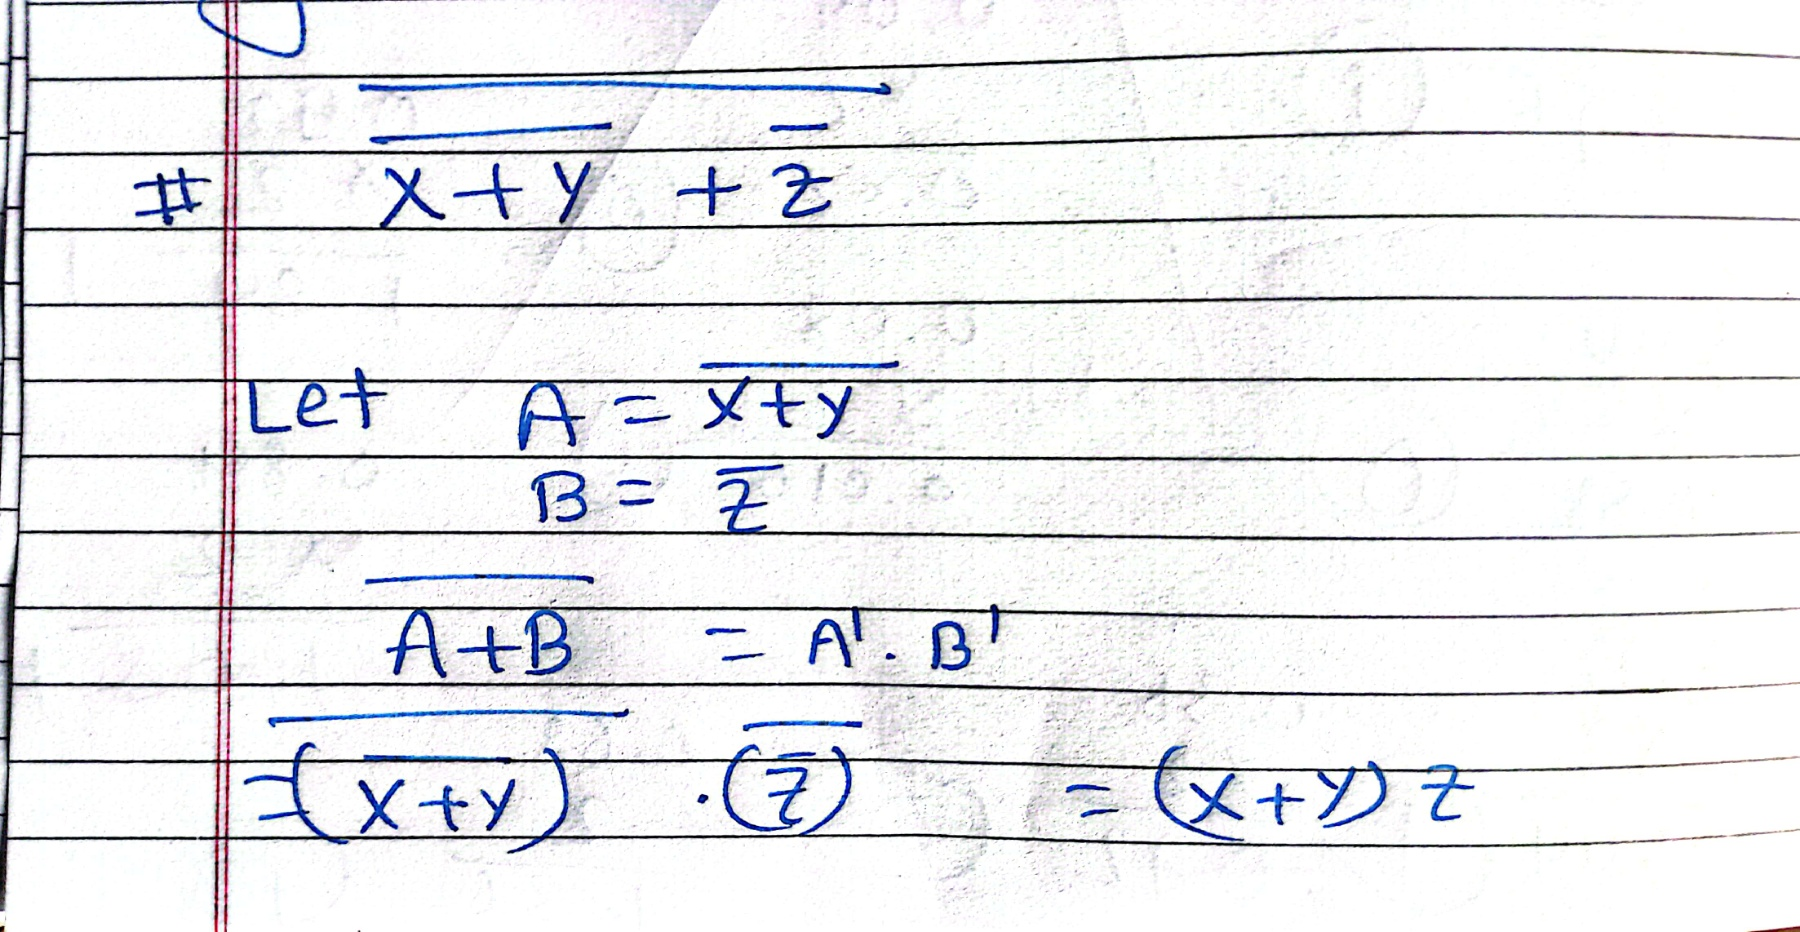 # \overline{\overline{x+y} + \overline{z}}
Let A = \overline{x+y}
B = \overline{z}
\overline{A+B} = A' . B'
= \overline{(\overline{x+y})} . \overline{(\overline{z})} = (x+y) z